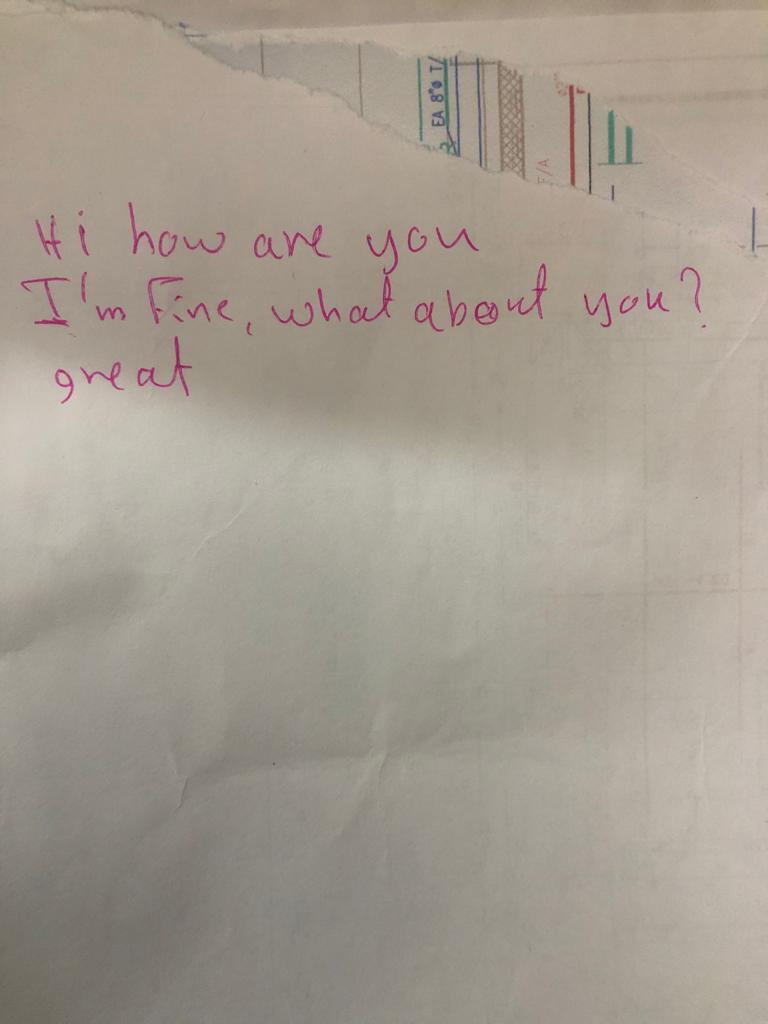 EA 8"ø T/
F/A
Hi how are you
I'm Fine, what about you?
great